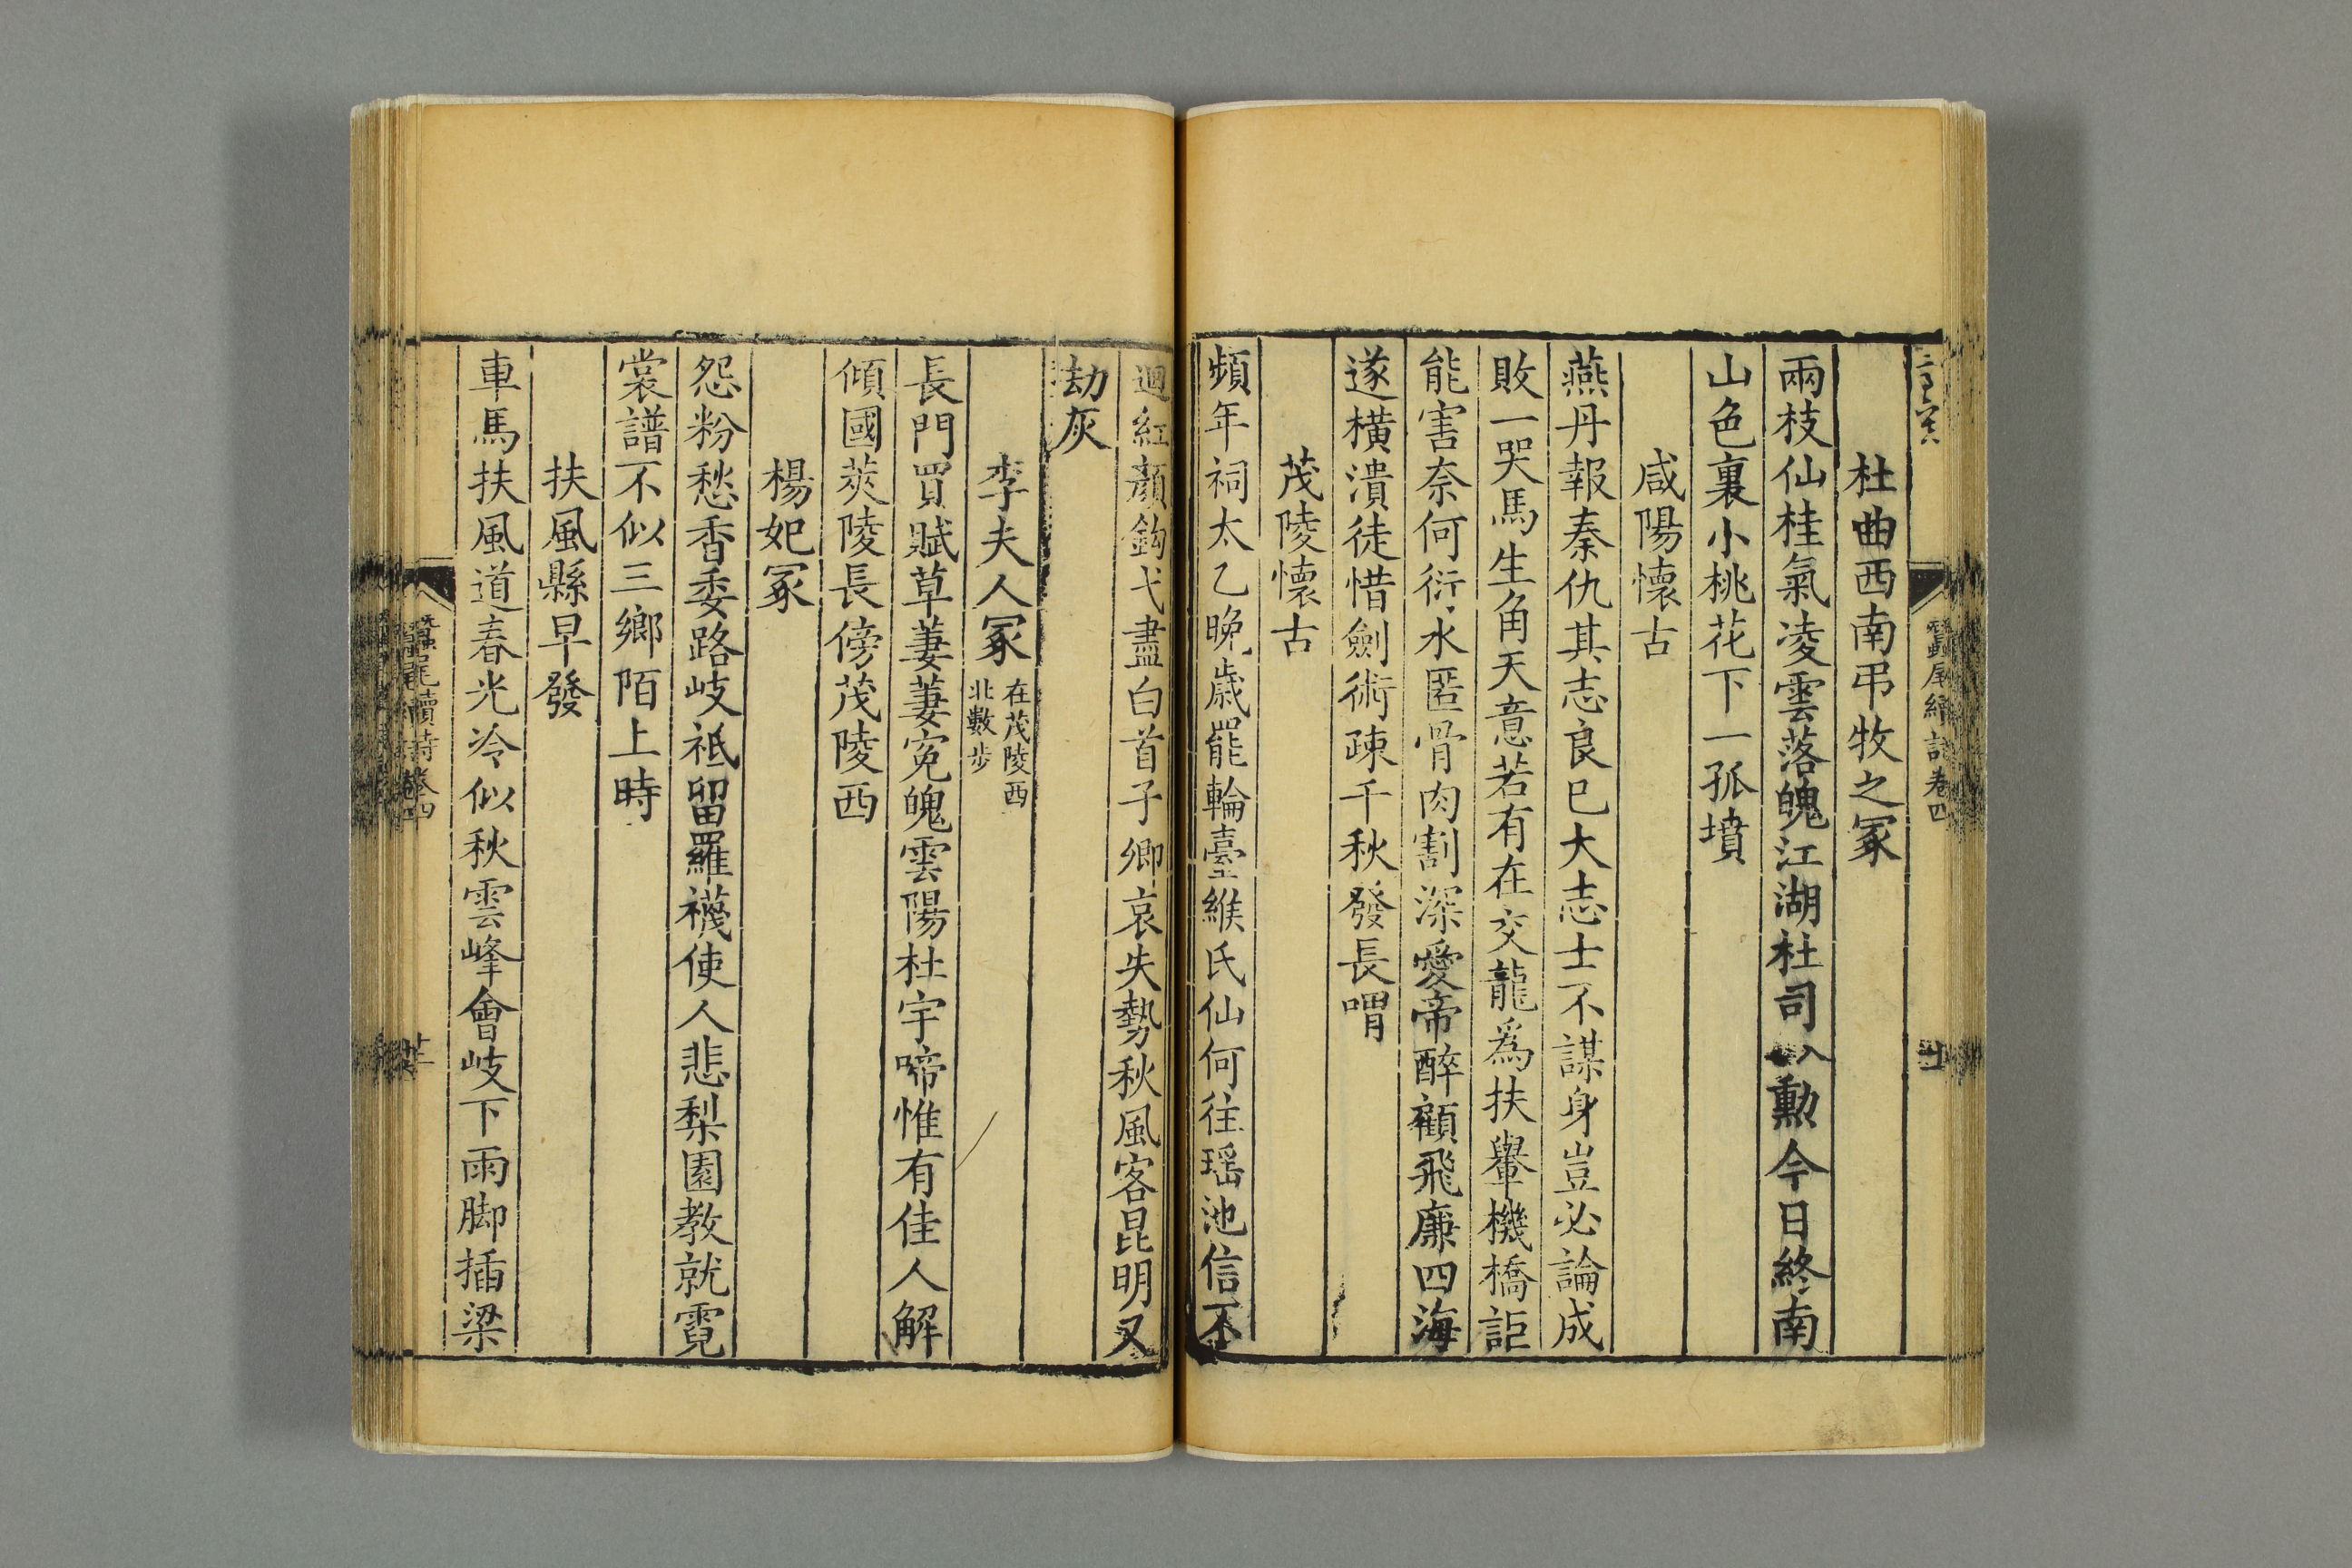 杜曲西南弔牧之冢
兩枝仙桂氣凌雲落魄江湖杜司勳今日終南
山色裏小桃花下一孤墳
咸陽懷古
燕丹報秦仇其志良已大志士不謀身豈必論成
敗一哭馬生角天意若有在交龍爲扶轝機橋詎
能害奈何衍水匿骨肉割深愛帝醉顧飛廉四海
遂橫潰徒惜劍術疎千秋發長喟
茂陵懷古
頻年祠太乙晚歲罷輪臺緱氏仙何往瑶池信不
迴紅顏鉤弋盡白首子卿哀失勢秋風客昆明又
劫灰
李夫人冢 在茂陵西北數步
長門買賦草萋萋寃魄雲陽杜宇啼惟有佳人解
傾國英陵長傍茂陵西
楊妃冢
怨粉愁香委路岐祗留羅襪使人悲梨園教就霓
裳譜不似三鄉陌上時
扶風縣早發
車馬扶風道春光冷似秋雲峰會岐下雨脚插梁
蠶尾續詩卷四